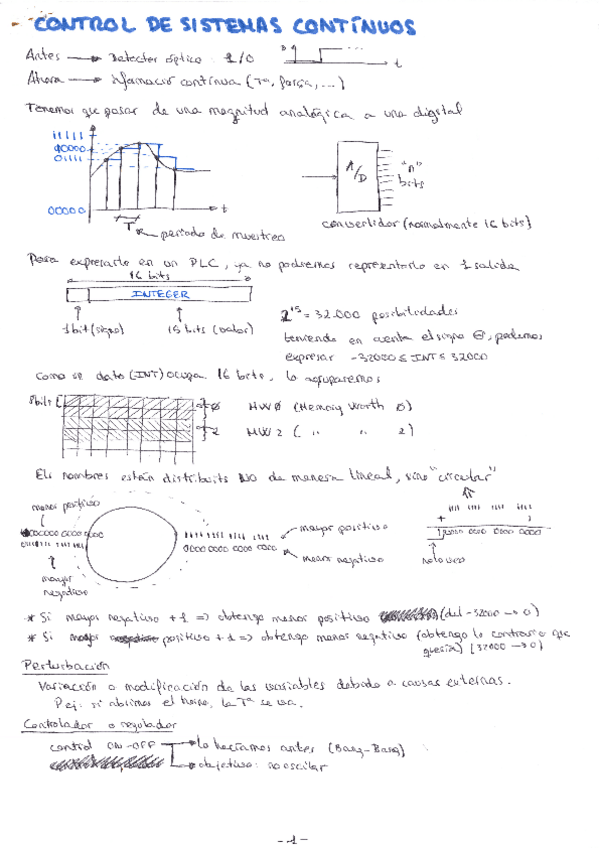 CONTROL DE SISTEMAS CONTÍNUOS
Antes → Detector óptico: 1/0
t
Ahora → información contínua (Tª, força, ...)
Tenemos que pasar de una magnitud analógica a una digital
11111
10000
01111
00000
t
T
periodo de muestreo
A/D
"n" bits
convertidor (normalmente 16 bits)
Para expresarlo en un PLC, ya no podremos representarlo en 1 salida
16 bits
INTEGER
1 bit (signo)
15 bits (valor)
2^15 = 32.000 posibilidades
teniendo en cuenta el signo ⊖, podemos
expresar -32000 ≤ INT ≤ 32000
Como se dato (INT) ocupa 16 bits, lo agruparemos
8bits
MW0 (Memory Worth 0)
MW2 ( " " 2)
Els nombres están distribuits NO de manera lineal, sino "circular"
menor positivo
0000 0000 0000
mayor negativo
1111 1111 1111 1111
mayor positivo
0000 0000 0000
menor negativo
1111 1111 1111 1111
+ 1
0000 0000 0000
no lo veo
* Si mayor negativo +1 => obtengo menor positivo (del -32000 → 0)
* Si mayor positivo +1 => obtengo menor negativo (obtengo lo contrario que
quería) [32000 → 0]
Perturbación
Variación o modificación de las variables debido a causas externas.
P.ej: si abrimos el horno, la Tª se va.
Controlador o regulador
control ON-OFF → lo hacíamos antes (Bang-Bang)
→ objetivo: no oscilar
-1-